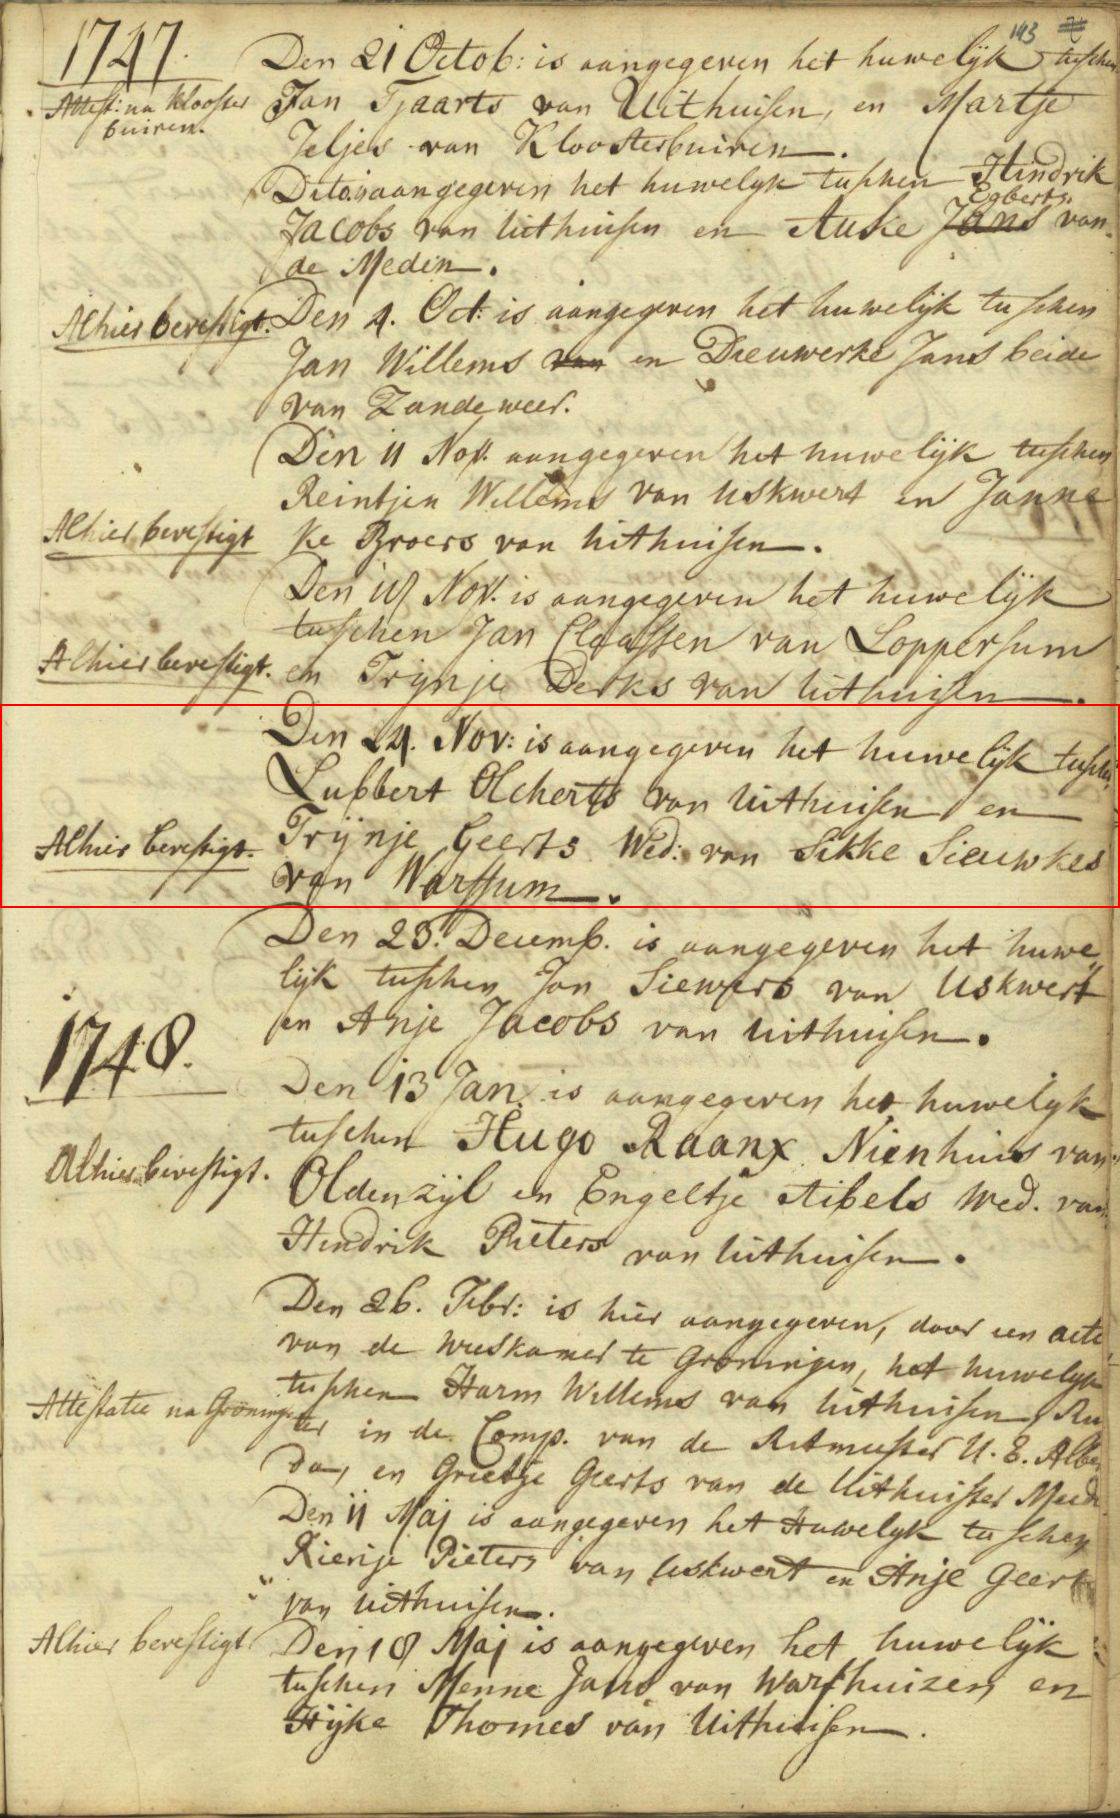 143
1747.
Den 21 Octob: is aangegeven het huwelijk tusschen
Attest: na Klooster
buiren.
Jan Tjaarts van Uithuisen, en Martje
Jeljes van Kloosterbuiren.
Dito is aangegeven het huwelyk tusschen Hindrik
Egberts.
Jacobs van Uithuisen en Auke Jans van
de Meden.
Alhier bevestigt.
Den 4. Oct: is aangegeven het huwelijk tusschen
Jan Willems van en Dieuwerke Jans beide
van Zandeweer.
Den 11 Nov. aangegeven het huwelijk tusschen
Reintjen Willems van Uskwert en Janne
Alhier bevestigt
ke Broers van Uithuisen.
Den 18 Nov. is aangegeven het huwelijk
tusschen Jan Claassen van Loppersum
Alhier bevestigt.
en Trijnje Derks van Uithuisen.
Den 24. Nov: is aangegeven het huwelijk tusschen
Lubbert Olcherts van Uithuisen en
Alhier bevestigt.
Trijnje Geerts Wed: van Sikke Sieuwkes
van Warffum.
Den 23. Decemb. is aangegeven het huwe
lijk tusschen Jan Siewers van Uskwert
en Anje Jacobs van Uithuisen.
1748.
Den 13 Jan. is aangegeven het huwelijk
tusschen Hugo Raanx Nienhuis van
Alhier bevestigt.
Oldenzijl en Engeltje Aibels Wed. van
Hindrik Pieters van Uithuisen.
Den 26. Febr: is hier aangegeven, door een acte
van de Weeskamer te Groningen, het huwelyk
tusschen Harm Willems van Uithuisen, Rui
Attestatie na Groninge
ter in de Comp. van de Ritmeester U. E. Alber
da, en Grietje Geerts van de Uithuister Meeden
Den 11 Maj is aangegeven het Huwelyk tusschen
Rienje Pieters van Uskwert en Anje Geerts
van Uithuisen.
Alhier bevestigt
Den 18 Maj is aangegeven het huwelijk
tusschen Menne Jans van Warfhuizen en
Hijke Thomes van Uithuisen.